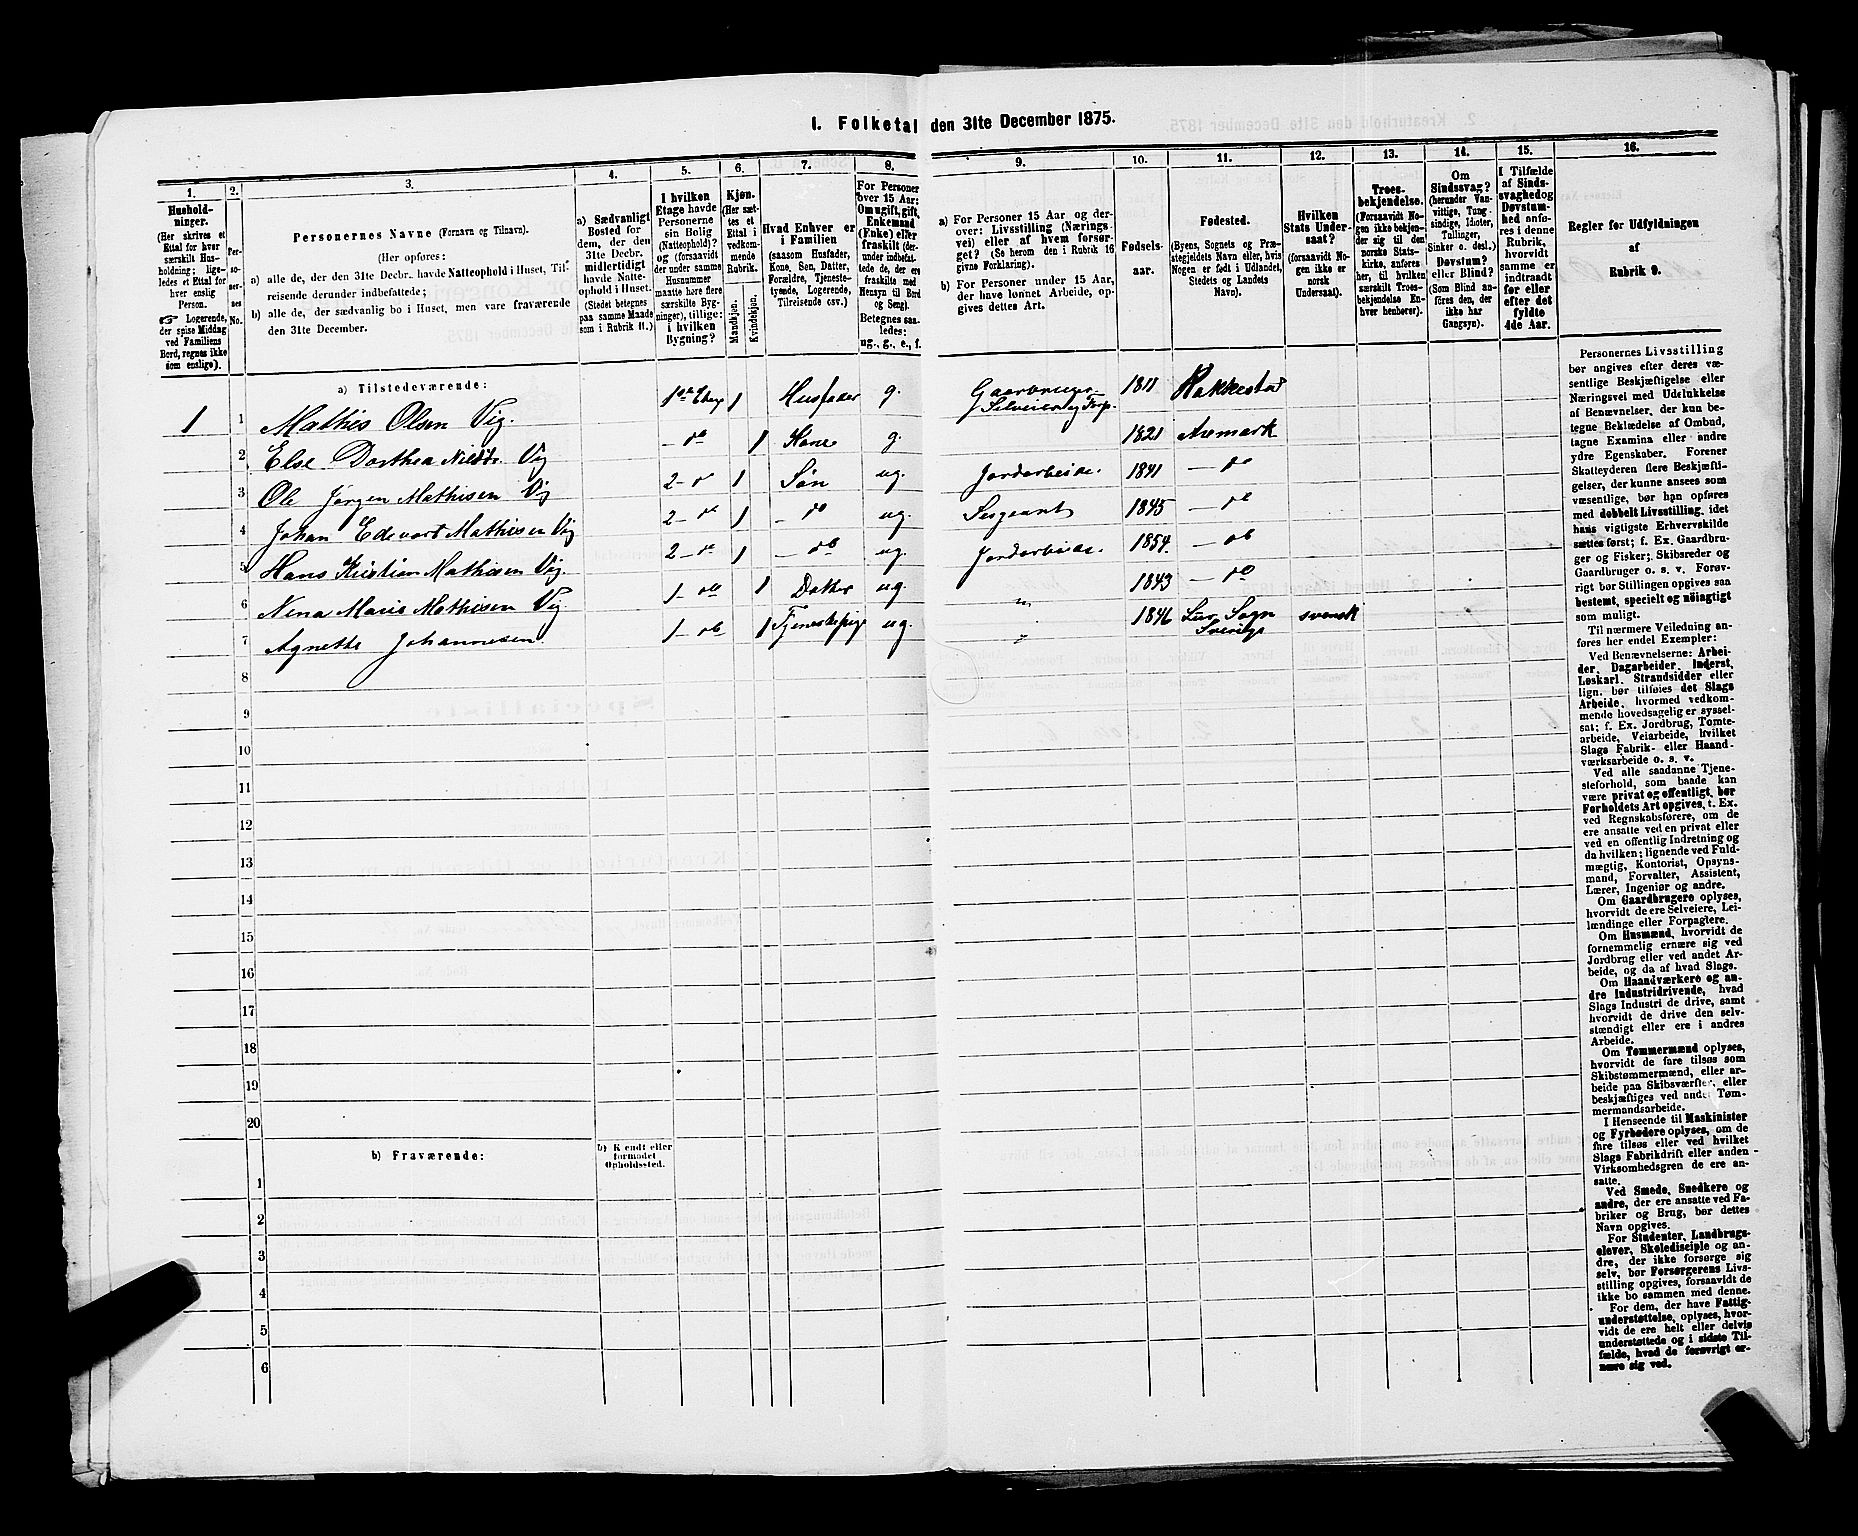 I. Folketal den 31te December 1875.
1.
Hushold-
ninger.
(Her skrives et
Ettal for hver
særskilt Hus-
holdning; lige-
ledes et Ettal for
hver enslig
Person.
☞ Logerende,
der spise Middag
ved Familiens
Bord, regnes ikke
som enslige).
2.
Per-
so-
ner-
nes
No.
3.
Personernes Navne (Fornavn og Tilnavn).
(Her opføres:
a) alle de, der den 31te Decbr. havde Natteophold i Huset, Til-
reisende derunder indbefattede;
b) alle de, der sædvanlig bo i Huset, men vare fraværende
den 31te December.
4.
a) Sædvanligt
Bosted for
dem, der den
31te Decbr.
midlertidigt
havde Natte-
ophold i Huset.
(Stedet betegnes
paa samme Maade
som i Rubrik 11.)
5.
I hvilken
Etage havde
Personerne
sin Bolig
(Natteophold)?
og (forsaavidt
der under samme
Husnummer
maatte høre flere
særskilte Byg-
ninger), tillige:
i hvilken
Bygning?
6.
Kjøn.
(Her sæt-
tes et
Ettal i
vedkom-
mende
Rubrik.
Mandkjøn.
Kvindekjøn.
7.
Hvad Enhver er
i Familien
(saasom Husfader,
Kone, Søn, Datter,
Forældre, Tjeneste-
tyende, Logerende,
Tilreisende osv.)
8.
For Personer
over 15 Aar:
Om ugift, gift,
Enkemand
(Enke) eller
fraskilt (der-
under indbefat-
tede de, der ere
fraskilte med
Hensyn til Bord
og Seng).
Betegnes saa-
ledes:
ug., g., e., f.
9.
a) For Personer 15 Aar og der-
over: Livsstilling (Nærings-
vei) eller af hvem forsør-
get? (Se herom den i Rubrik 16
givne Forklaring).
b) For Personer under 15 Aar,
der have lønnet Arbeide, op-
gives dettes Art.
10.
Fødsels-
aar.
11.
Fødested.
(Byens, Sognets og Præ-
stegjeldets Navn eller, hvis
Nogen er født i Udlandet,
Stedets og Landets
Navn).
12.
Hvilken
Stats Under-
saat?
(forsaavidt No-
gen ikke er
norsk
Undersaat).
13.
Troes-
bekjendelse.
(Forsaavidt No-
gen ikke bekjen-
der sig til den
norske Stats-
kirke, anføres
her, til hvilken
særskilt Troes-
bekjendelse En-
hver henhører).
14.
Om
Sindssvag?
(herunder Van-
vittige, Tung-
sindige, Idioter,
Tullinger,
Sinker o. desl.)
Døvstum?
eller Blind?
(Som Blind an-
føres den, der
ikke har
Gangsyn).
15.
I Tilfælde
af Sinds-
svaghed og
Døvstum-
hed anfø-
res i denne
Rubrik,
hvorvidt
samme er
indtraadt
før eller
efter det
fyldte
4de Aar.
16.
Regler for Udfyldningen
af
Rubrik 9.
a) Tilstedeværende:
1 1 Mathis Olsen Vig. 1ste Etage 1 Husfader g. Gaardbruger Selveier 1811 Hakkestad
2 Else Dorthea Vig – do 1 Kone g. 1821 Aremark
3 Ole Jørgen Mathisen Vig 2 – do 1 Søn ug. Jordarbeide. 1841 – do
4 Johan Edevart Mathisen Vig 2 – do 1 – do ug. Sergeant 1845 – do
5 Hans Kristian Mathisen Vig. 2 – do 1 – do ug. Jordarbeide. 1854. – do
6 Nina Marie Mathisen Vig 1 – do 1 Datter ug. " 1843 – do
7 Agnette Johannesen. 1 – do 1 Tjenestepige ug. " 1846 Sogn Sverige svensk
8
9
10
11
12
13
14
15
16
17
18
19
20
b) Fraværende:
b) Kjendt eller
formodet
Opholdssted.
1
2
3
4
5
6
Personernes Livsstilling
bør angives efter deres væ-
sentlige Beskjæftigelse eller
Næringsvei med Udelukkelse
af Benævnelser, der kun be-
tegne Beklædelse af Ombud,
tagne Examina eller andre
ydre Egenskaber. Forener
Skatteyderen flere Beskjæfti-
gelser, der kunne ansees som
væsentlige, bør han opføres
med dobbelt Livsstilling, idet
hans vigtigste Erhvervskilde
sættes først; f. Ex. Gaardbru-
ger og Fisker; Skibsreder og
Gaardbruger o. s. v. Forøv-
rigt bør Stillingen opgives saa
bestemt, specielt og nøiagtigt
som muligt.
Til nærmere Veiledning an-
føres her endel Exempler:
Ved Benævnelserne: Arbei-
der, Dagarbeider, Inderst,
Løskarl, Strandsidder eller
lign. bør tilføies det Slags
Arbeide, hvormed vedkom-
mende hovedsagelig er syssel-
sat; f. Ex. Jordbrug, Tomte-
arbeide, Veiarbeide, hvilket
Slags Fabrik- eller Haand-
værksarbeide o. s. v.
Ved alle saadanne Tjene-
steforhold, som baade kan
være privat og offentligt, bør
Forholdets Art opgives, t. Ex.
ved Regnskabsførere, om de
ere ansatte ved en privat eller
ved en offentlig Indretning og
da hvilken; lignende ved Fuld-
mægtig, Kontorist, Opsyns-
mand, Forvalter, Assistent,
Lærer, Ingeniør og andre.
Om Gaardbrugere oplyses,
hvorvidt de ere Selveiere, Lei-
lændinge eller Forpagtere.
Om Husmænd, hvorvidt de
fornemmelig ernære sig ved
Jordbrug eller ved andet Ar-
beide, og da af hvad Slags.
Om Haandværkere og an-
dre Industridrivende, hvad
Slags Industri de drive, samt
hvorvidt de drive den selv-
stændigt eller ere i andres
Arbeide.
Om Tømmermænd oplyses,
hvorvidt de fare tilsøs som
Skibstømmermænd, eller ar-
beide paa Skibsværfter, eller
beskjæftiges ved andet Tøm-
mermandsarbeide.
I Henseende til Maskinister
og Fyrbødere oplyses, om de
fare tilsøs eller ved hvilket
Slags Fabrikdrift eller anden
Virksomhedsgren de ere an-
satte.
Ved Smede, Snedkere og
andre, der ere ansatte ved Fa-
briker og Brug, bør dettes
Navn opgives.
For Studenter, Landbrugs-
elever, Skoledisciple og an-
dre, der ikke forsørge sig
selv, bør Forsørgerens Livs-
stilling opgives, forsaavidt de
ikke bo sammen med denne.
For dem, der have Fattig-
understøttelse, oplyses, hvor-
vidt de ere helt eller delvis
understøttede og i sidste Til-
fælde, hvad de forøvrigt er-
nære sig ved.